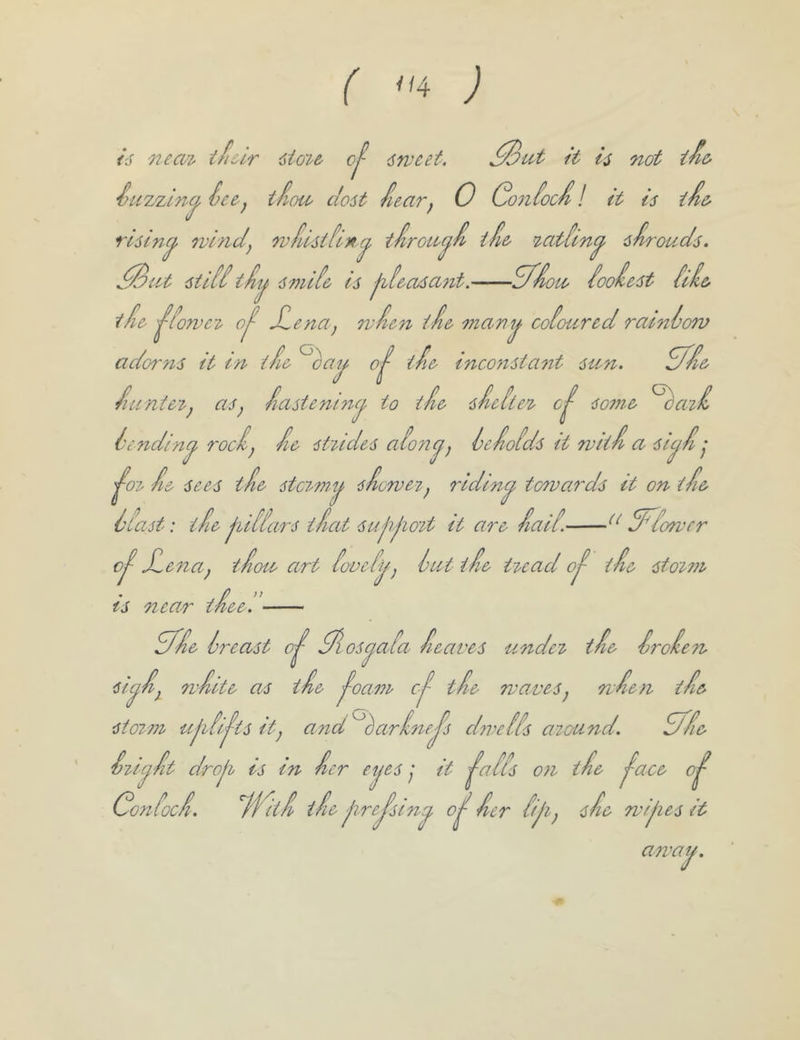 ( 114 )
is near their store of sweet. But it is not the
buzzing bee, thou dost hear, O Conloch! it is the
rising wind, whistling through the ratling shrouds.
But still thy smile is pleasant.——Thou lookest like
the flower of Lena, when the many coloured rainbow
adorns it in the day of the inconstant sun. The
hunter, as, hastening to the shelter of some dark
bending rock, he strides along, beholds it with a sigh;
for he sees the stormy shower, riding towards it on the
blast: the pillars that support it are hail.——“Flower
of Lena, thou art lovely, but the tread of the storm
is near thee.”——
The breast of Rosgala heaves under the broken
sigh, white as the foam of the waves, when the
storm uplifts it, and darkneſs dwells around. The
bright drop is in her eyes; it falls on the face of
Conloch. With the preſsing of her lip, she wipes it
away.